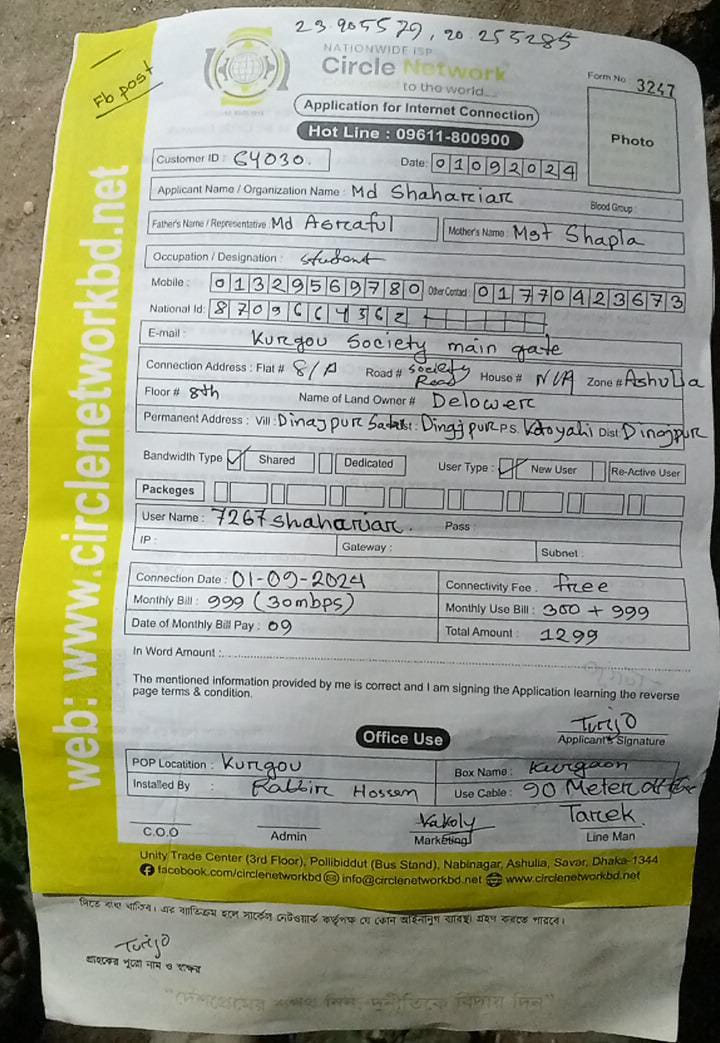 23.905579, 20.255285
Fb post
NATIONWIDE ISP
Circle Network
to the world...
Form No 3247
Application for Internet Connection
Hot Line : 09611-800900
Photo
Customer ID : 64030.
Date: 01092024
Applicant Name / Organization Name : Md Shahariar
Blood Group :
Father's Name / Representative Md Asraful
Mother's Name : Mst Shapla
Occupation / Designation : student
Mobile : 01329569780 Other Contact : 01770423673
National Id: 8709664362
E-mail :
Kurgou Society main gate
Connection Address : Flat # 8/A Road # Society Road House # N/A Zone # Ashulia
Floor # 8th Name of Land Owner # Delower
Permanent Address : Vill : Dinajpur Sadar P.S. Kotoyali Dist: Dinajpur
Bandwidth Type Shared Dedicated User Type : New User Re-Active User
Packeges
User Name : 7267shahariar. Pass :
IP : Gateway : Subnet :
Connection Date : 01-09-2024 Connectivity Fee : free
Monthly Bill : 999 (30mbps) Monthly Use Bill : 300 + 999
Date of Monthly Bill Pay : 09 Total Amount : 1299
In Word Amount :
The mentioned information provided by me is correct and I am signing the Application learning the reverse
page terms & condition.
Turjo
Applicant's Signature
Office Use
POP Locatition : Kurgou Box Name : Kurgaon
Installed By : Rabbir Hossen Use Cable : 90 Meter
Kakoly Tarek.
C.O.O Admin Marketing Line Man
Unity Trade Center (3rd Floor), Pollibiddut (Bus Stand), Nabinagar, Ashulia, Savar, Dhaka-1344
facebook.com/circlenetworkbd info@circlenetworkbd.net www.circlenetworkbd.net
web: www.circlenetworkbd.net
দিতে বাধ্য থাকিব। এর ব্যতিক্রম হলে সার্কেল নেটওয়ার্ক কর্তৃপক্ষ যে কোন আইনানুগ ব্যবস্থা গ্রহণ করতে পারবে।
Turjo
গ্রাহকের পুরো নাম ও স্বাক্ষর
"দেশপ্রেমের শপথ নিন, দুর্নীতিকে বিদায় দিন"